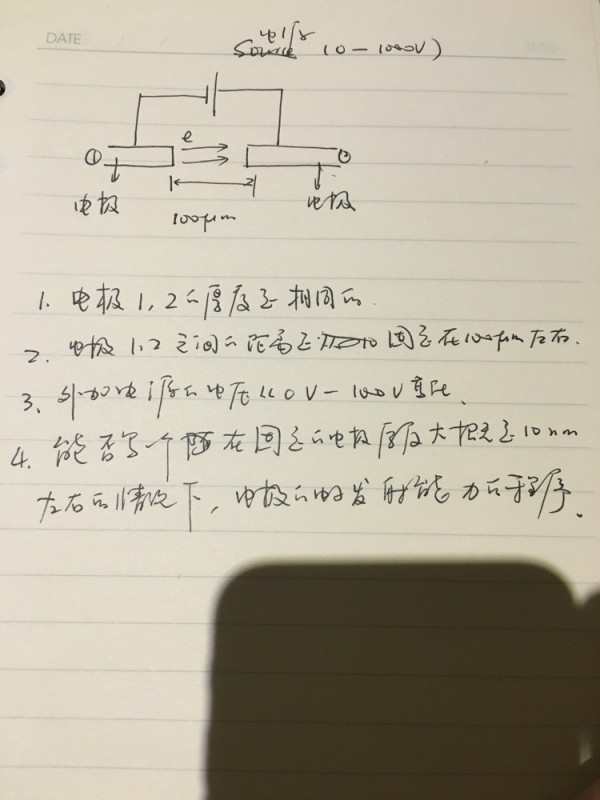 DATE
电源
Source (0-1000V)
e
① ②
电极 电极
100μm
1. 电极1,2的厚度是相同的.
2. 电极1,2之间的距离是固定在100μm左右.
3. 外加电源的电压从0V-1000V变化.
4. 能否写个 在固定的电极厚度大概是10nm
左右的情况下, 电极的电子发射能力的程序.